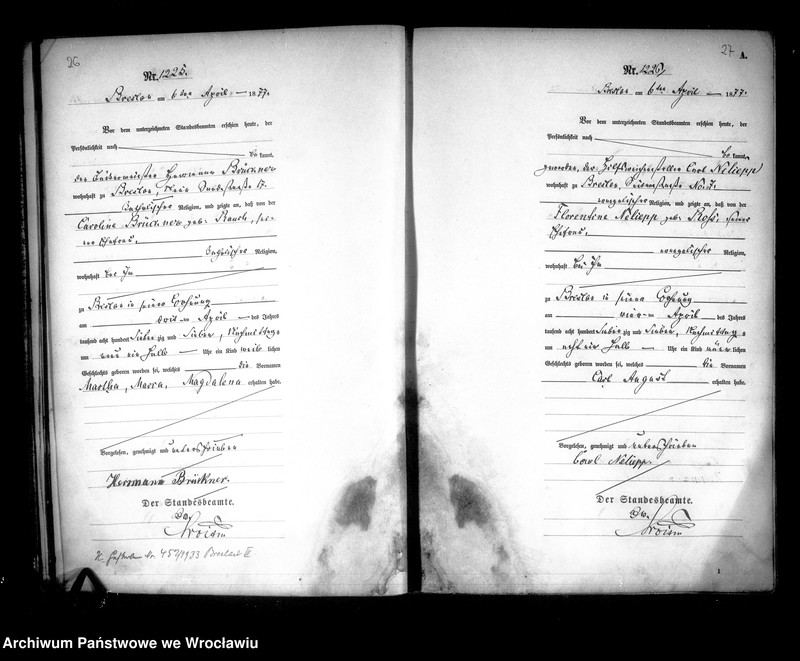 26
Nr. 1225.
Breslau am 6ten April 1877.
Vor dem unterzeichneten Standesbeamten erschien heute, der
Persönlichkeit nach
be kannt,
der Hermann Brückner
wohnhaft zu Breslau, 17.
katholischer Religion, und zeigte an, daß von der
Caroline Brückner geb. Rauch, sei-
ner Ehefrau,
Religion,
wohnhaft bei ihm
zu Breslau in seiner Wohnung
am drit-en April des Jahres
tausend acht hundert sieben zig und sieben, Nachmittags
um ein halb Uhr ein Kind weib lichen
Geschlechts geboren worden sei, welches die Vornamen
Martha, Maria, Magdalena erhalten habe.
Vorgelesen, genehmigt und unterschrieben
Hermann Brückner.
Der Standesbeamte.
457/1933 Breslau II
27
A.
Nr. 1226
Breslau am 6ten April 1877.
Vor dem unterzeichneten Standesbeamten erschien heute, der
Persönlichkeit nach
be kannt,
der Hilfsweichensteller Carl Neliepp
wohnhaft zu Breslau,
evangelischer Religion, und zeigte an, daß von der
Florentine Neliepp geb. seiner
Ehefrau,
evangelischer Religion,
wohnhaft bei ihm
zu Breslau in seiner Wohnung
am vier-en April des Jahres
tausend acht hundert sieben zig und sieben, Nachmittags
um acht ein halb Uhr ein Kind männ lichen
Geschlechts geboren worden sei, welches die Vornamen
Carl August erhalten habe.
Vorgelesen, genehmigt und unterschrieben
Carl Neliepp
Der Standesbeamte.
1
Archiwum Państwowe we Wrocławiu